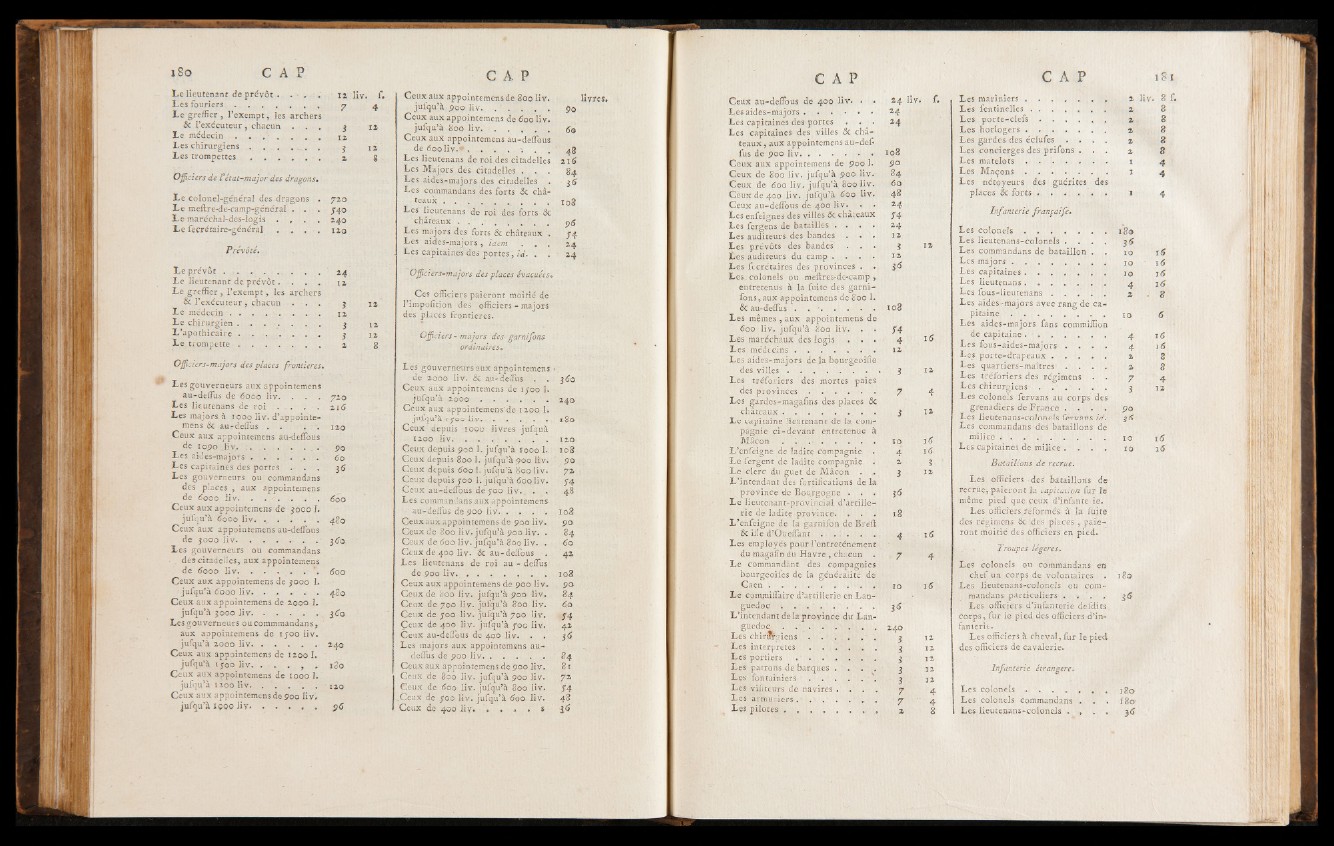 180 C A P
Le lieutenant de prévôt . . . . 12 liv. ſ.
Les fouriers . . . . . . . 7 4
Le greffier, l'exempt, les archers
& l'exécuteur, chacun . . . 3 12
Le médecin . . . . . . . 12
Les chirurgiens . . . . . . 3 12
Les trompettes . . . . . . 2 8
Officiers de l'état-major des dragons.
Le colonel-général des dragons . 720
Le meſtre-de-camp-général . . . 540
Le maréchal-des-logis . . . . 240
Le ſecrétaire-général . . . . 120
Prévôté.
Le prévôt . . . . . . . . 24
Le lieutenant de prévôt . . . . 12
Le greffier, l'exempt, les archers
& l'exécuteur, chacun . . . 3 12
Le médecin . . . . . . . . 12
Le chirurgien . . . . . . . 3 12
L'apothicaire . . . . . . . 3 12
Le trompette . . . . . . . 2 8
Officiers-majors des places frontieres.
Les gouverneurs aux appointemens
au-deſſus de 6000 liv. . . . . 720
Les lieutenans de roi . . . . 216
Les majors à 1000 liv. d'appointe-
mens & au-deſſus . . . . . 120
Ceux aux appointemens au-deſſous
de 1090 liv. . . . . . . . 90
Les aides-majors . . . . . . 60
Les capitaines des portes . . . 36
Les gouverneurs ou commandans
des places, aux appointemens
de 6000 liv. . . . . . . 600
Ceux aux appointemens de 3000 l.
juſqu'à 6000 liv. . . . . . 480
Ceux aux appointemens au-deſſous
de 3000 liv. . . . . . . 360
Les gouverneurs ou commandans
des citadelles, aux appointemens
de 6000 liv. . . . . . . . 600
Ceux aux appointemens de 3000 l.
juſqu'à 6000 liv. . . . . . 480
Ceux aux appointemens de 2000 l.
juſqu'à 3000 liv. . . . . . 360
Les gouverneurs ou commmandans,
aux appointemens de 1500 liv.
juſqu'à 2000 liv. . . . . . 240
Ceux aux appointemens de 1200 l.
juſqu'à 1500 liv. . . . . . 180
Ceux aux appointemens de 1000 l.
juſqu'à 1200 liv. . . . . . 120
Ceux aux appointemens de 900 liv.
juſqu'à 1000 liv. . . . . . 96
C A P
Ceux aux appointemens de 800 liv. livres.
juſqu'à 900 liv. . . . . . 90
Ceux aux appointemens de 600 liv.
juſqu'à 800 liv. . . . . . 60
Ceux aux appointemens au-deſſous
de 600 liv. . . . . . . . 48
Les lieutenans de roi des citadelles 216
Les Majors des citadelles . . . 84
Les aides-majors des citadelles . 36
Les commandans des forts & châ-
teaux . . . . . . . . . 108
Les lieutenans de roi des forts &
châteaux . . . . . . . . 96
Les majors des forts & châteaux . 54
Les aides-majors, idem . . . 24
Les capitaines des portes, id. . . 24
Officiers-majors des places évacuées.
Ces officiers paieront moitié de
l'impoſition des officiers-majors
des places frontieres.
Officiers-majors des garniſons
ordinaires.
Les gouverneurs aux appointemens
de 2000 liv. & au-deſſus . . 360
Ceux aux appointemens de 1500 l.
juſqu'à 2000 . . . . . . 240
Ceux aux appointemens de 1200 l.
juſqu'à 1500 liv. . . . . . 180
Ceux depuis 1000 livres juſqu'à
1200 liv. . . . . . . . 120
Ceux depuis 900 l. juſqu'à 1000 l. 108
Ceux depuis 800 l. juſqu'à 900 liv. 90
Ceux depuis 600 l. juſqu'à 800 liv. 72
Ceux depuis 500 l. juſqu'à 600 liv. 54
Ceux au-deſſous de 500 liv. . . 48
Les commandans aux appointemens
au-deſſus de 900 liv. . . . . 108
Ceux aux appointemens de 900 liv. 90
Ceux de 800 liv. juſqu'à 900 liv. . 84
Ceux de 600 liv. juſqu'à 800 liv. . 60
Ceux de 400 liv. & au-deſſous . 42
Les lieutenans de roi au-deſſus
de 900 liv. . . . . . . . 108
Ceux aux appointemens de 900 liv. 90
Ceux de 800 liv. juſqu'à 900 liv. 84
Ceux de 700 liv. juſqu'à 800 liv. 60
Ceux de 500 liv. juſqu'à 700 liv. 54
Ceux de 400 liv. juſqu'à 500 liv. 42
Ceux au-deſſous de 400 liv. . . 36
Les majors aux appointemens au-
deſſus de 900 liv. . . . . . 84
Ceux aux appointemens de 900 liv. 81
Ceux de 800 liv. juſqu'à 900 liv. 72
Ceux de 600 liv. juſqu'à 800 liv. 54
Ceux de 500 liv. juſqu'à 600 liv. 48
Ceux de 400 liv. . . . . . 36
C A P
Ceux au-deſſous de 400 liv. . . 24 liv. ſ.
Les aides-majors . . . . . . 24
Les capitaines des portes . . . 24
Les capitaines des villes & châ-
teaux, aux appointemens au-deſ-
ſus de 900 liv. . . . . . . 108
Ceux aux appointemens de 900 l. 90
Ceux de 800 liv. juſqu'à 900 liv. 84
Ceux de 600 liv. juſqu'à 800 liv. 60
Ceux de 400 liv. juſqu'à 600 liv. 48
Ceux au-deſſous de 400 liv. . . 24
Les enſeignes des villes & châteaux 54
Les ſergens de batailles . . . . 24
Les auditeurs des bandes . . . 12
Les prévôts des bandes . . . 3 12
Les auditeurs du camp . . . . 12
Les ſecrétaires des provinces . . 36
Les colonels ou meſtres-de-camp,
entretenus à la ſuite des garni-
ſons, aux appointemens de 800 l.
& au-deſſus . . . . . . . 108
Les mêmes, aux appointemens de
600 liv. juſqu'à 800 liv. . . 54
Les maréchaux des logis . . . 4 16
Les médecins . . . . . . . 12
Les aides-majors de la bourgeoiſie
des villes . . . . . . . . 3 12
Les tréſoriers des mortes paies
des provinces . . . . . . 7 4
Les gardes-magaſins des places &
châteaux . . . . . . . . 3 12
Le capitaine lieutenant de la com-
pagnie ci-devant entretenue à
Mâcon . . . . . . . . 10 16
L'enſeigne de ladite compagnie . 4 16
Le ſergent de ladite compagnie . 2 8
Le clerc du guet de Mâcon . . 3 12
L'intendant des fortifications de la
province de Bourgogne . . . 36
Le lieutenant-provincial d'artille-
rie de ladite province . . . 18
L'enſeigne de la garniſon de Breſt
& iſle d'Oueſſant . . . . . 4 16
Les employés pour l'entretènement
du magaſin au Havre, chacun . 7 4
Le commandant des compagnies
bourgeoiſes de la généralité de
Caen . . . . . . . . . 10 16
Le commiſſaire d'artillerie en Lan-
guedoc . . . . . . . . 36
L'intendant de la province du Lan-
guedoc . . . . . . . . 240
Les chirurgiens . . . . . . 3 12
Les interpretes . . . . . . 3 12
Les portiers . . . . . . . 3 12
Les patrons de barques . . . . 3 12
Les fontainiers . . . . . . 3 12
Les viſiteurs de navires . . . . 7 4
Les armuriers . . . . . . . 7 4
Les pilotes . . . . . . . . 2 8
C A P 181
Les mariniers . . . . . . . 2 liv. 8 ſ.
Les ſentinelles . . . . . . . 2 8
Les porte-clefs . . . . . . 2 8
Les horlogers . . . . . . . 2 8
Les gardes des écluſes . . . . 2 8
Les concierges des priſons . . . 2 8
Les matelots . . . . . . . 1 4
Les Maçons . . . . . . . 1 4
Les nétoyeurs des guérites des
places & forts . . . . . . 1 4
Infanterie françaiſe.
Les colonels . . . . . . . 180
Les lieutenans-colonels . . . . 36
Les commandans de bataillon . . 10 16
Les majors . . . . . . . . 10 16
Les capitaines . . . . . . . 10 16
Les lieutenans . . . . . . . 4 16
Les ſous-lieutenans . . . . . 2 8
Les aides-majors avec rang de ca-
pitaine . . . . . . . . 10 6
Les aides-majors ſans commiſſion
de capitaine . . . . . . . 4 16
Les ſous-aides-majors . . . . 4 16
Les porte-drapeaux . . . . . 2 8
Les quartiers-maîtres . . . . 2 8
Les tréſoriers des régimens . . . 7 4
Les chirurgiens . . . . . . 3 12
Les colonels ſervans au corps des
grenadiers de France . . . . 90
Les lieutenans-colonels ſervans id. 36
Les commandans des bataillons de
milice . . . . . . . . . 10 16
Les capitaines de milice . . . . 10 16
Bataillons de recrue.
Les officiers des bataillons de
recrue, paieront la capitation ſur le
même pied que ceux d'infanterie.
Les officiers réformés à la ſuite
des régimens & des places, paie-
ront moitié des officiers en pied.
Troupes légeres.
Les colonels ou commandans en
chef un corps de volontaires . 180
Les lieutenans-colonels ou com-
mandans particuliers . . . . 36
Les officiers d'infanterie deſdits
corps, ſur le pied des officiers d'in-
fanterie.
Les officiers à cheval, ſur le pied
des officiers de cavalerie.
Infanterie étrangere.
Les colonels . . . . . . . 180
Les colonels commandans . . . 180
Les lieutenans-colonels . . . . 36